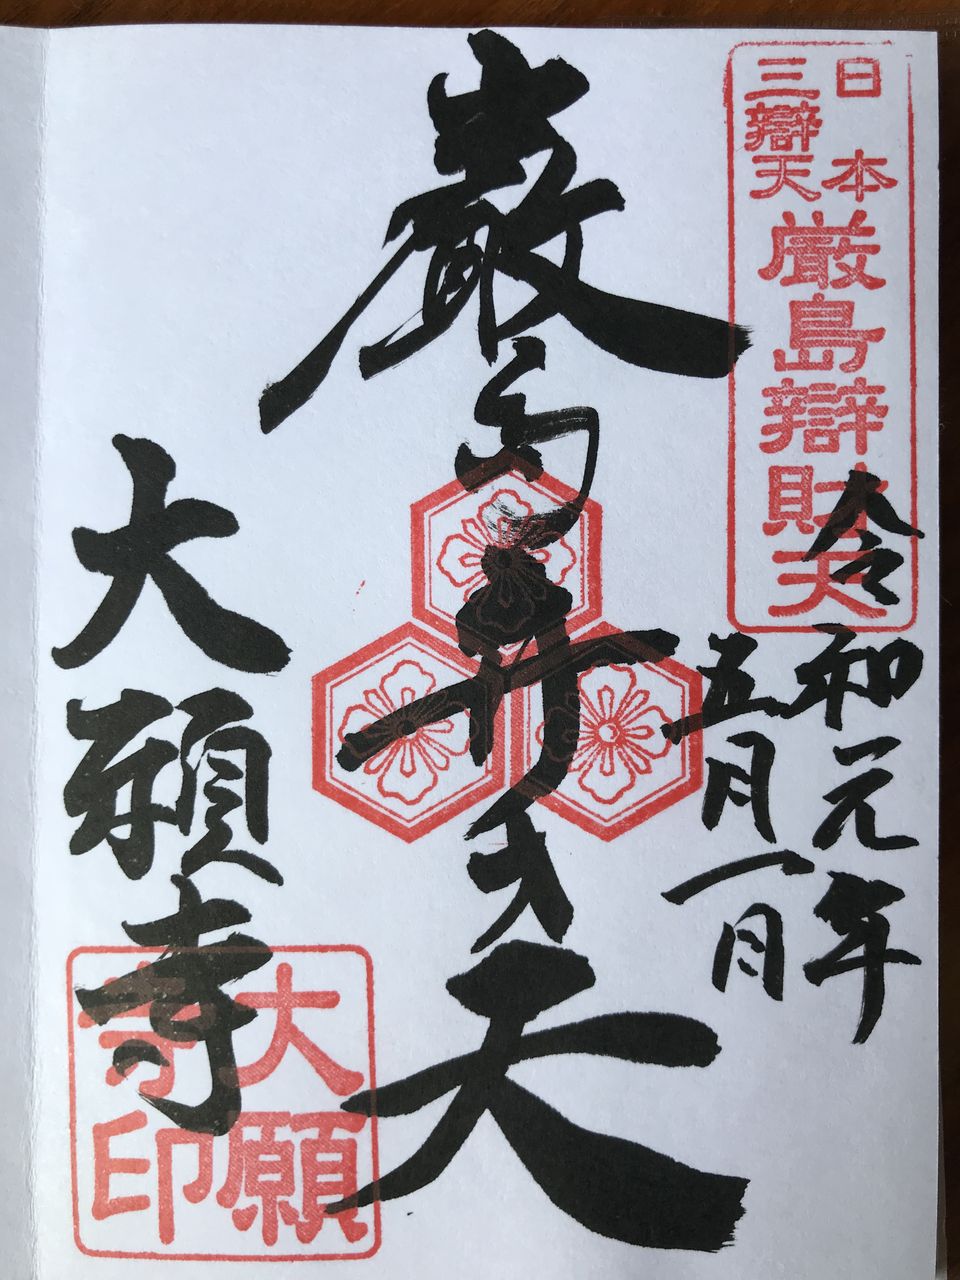 日本
三辯天
厳島辯財天
令和元年
五月一日
厳島弁才天
大願寺
大願
寺印